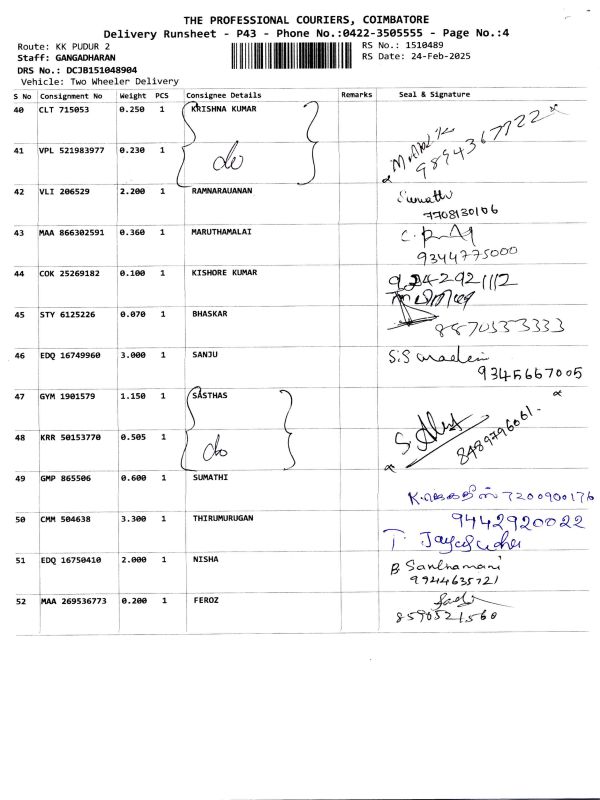 THE PROFESSIONAL COURIERS, COIMBATORE
Delivery Runsheet - P43 - Phone No.:0422-3505555 - Page No.:4
Route: KK PUDUR 2 RS No.: 1510489
Staff: GANGADHARAN RS Date: 24-Feb-2025
DRS No.: DCJB151048904
Vehicle: Two Wheeler Delivery
S No Consignment No Weight PCS Consignee Details Remarks Seal & Signature
40 CLT 715053 0.250 1 KRISHNA KUMAR
41 VPL 521983977 0.230 1 do 9894367722
42 VLI 206529 2.200 1 RAMNARAUANAN Sumathi
7708130106
43 MAA 866302591 0.360 1 MARUTHAMALAI
9344775000
44 COK 25269182 0.100 1 KISHORE KUMAR
45 STY 6125226 0.070 1 BHASKAR
46 EDQ 16749960 3.000 1 SANJU
9345667005
47 GYM 1901579 1.150 1 SASTHAS
48 KRR 50153770 0.505 1 do 8489796061
49 GMP 865506 0.600 1 SUMATHI 7200900176
50 CMM 504638 3.300 1 THIRUMURUGAN 9442920022
51 EDQ 16750410 2.000 1 NISHA B. Santhamani
9944635721
52 MAA 269536773 0.200 1 FEROZ
8590521560